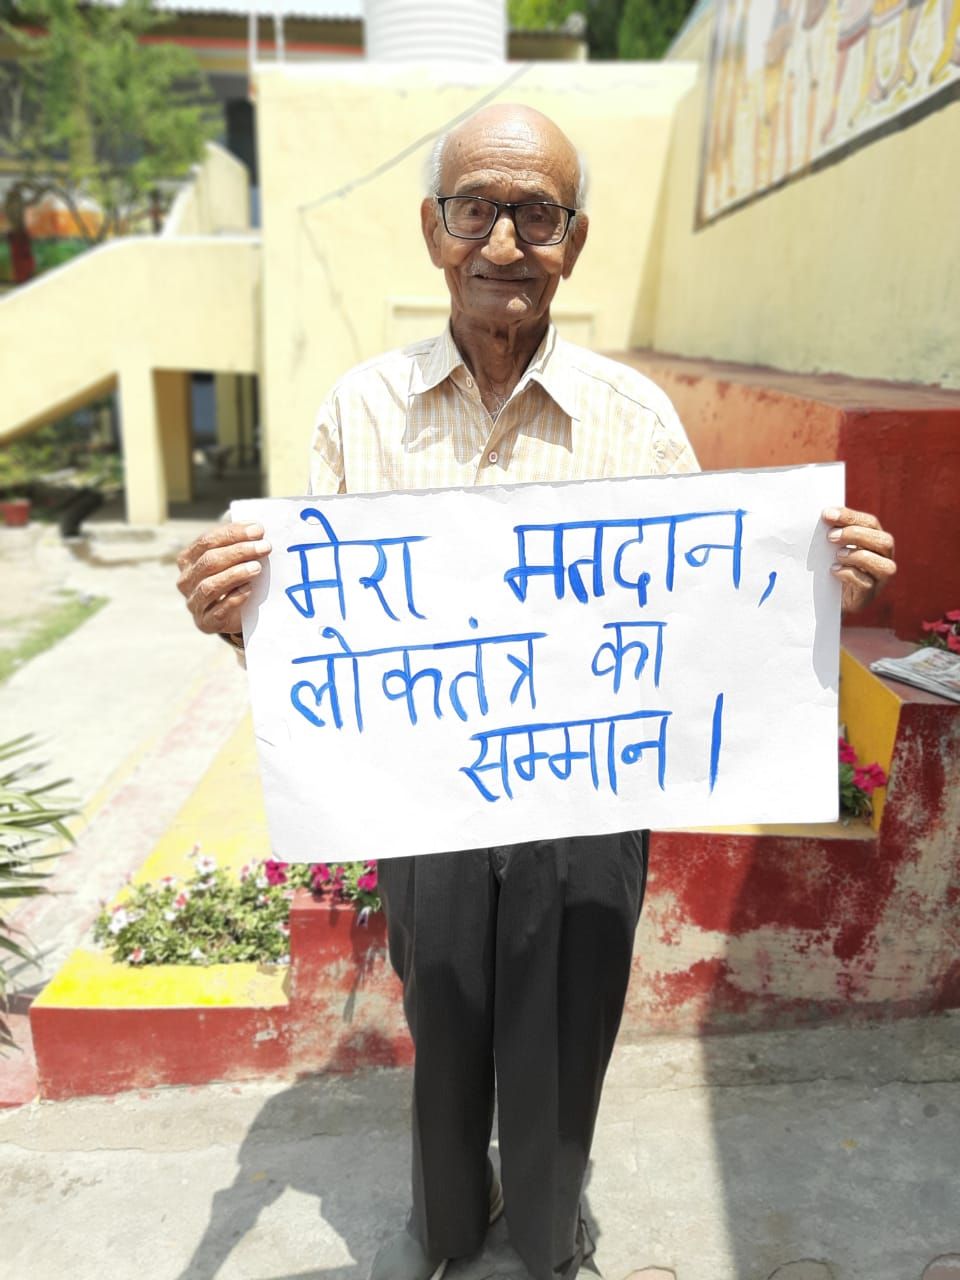 मेरा मतदान,
लोकतंत्र का
सम्मान।